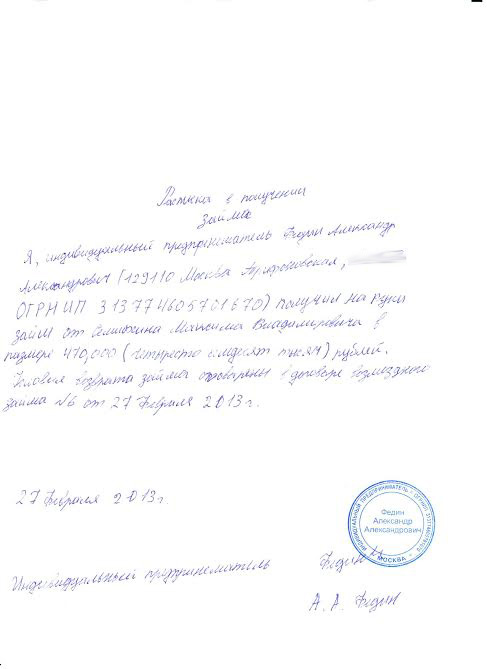 Расписка в получении
займа
Я, индивидуальный предприниматель Федин Александр
Александрович (129110 Москва
ОГРНИП 313774605701670) получил на руки
займ от Максима Владимировича в
размере 470,000 (четыреста семьдесят тысяч) рублей.
Условия возврата займа оговорены в договоре возмездного
займа №6 от 27 Февраля 2013г.
27 Февраля 2013г.
ИНДИВИДУАЛЬНЫЙ ПРЕДПРИНИМАТЕЛЬ • ОГРНИП
Федин
Александр
Александрович
МОСКВА
Индивидуальный предприниматель Федин
А. А. Федин